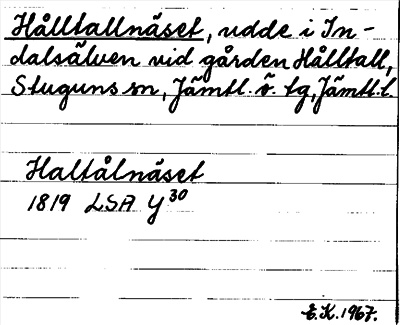 Hålltallnäset, udde i In-
dalsälven vid gården Hålltall,
Stuguns sn, Jämtl. ö. tg, Jämtl. l.
Haltålnäset
1819 LSA Y³⁰
E.K. 1967.